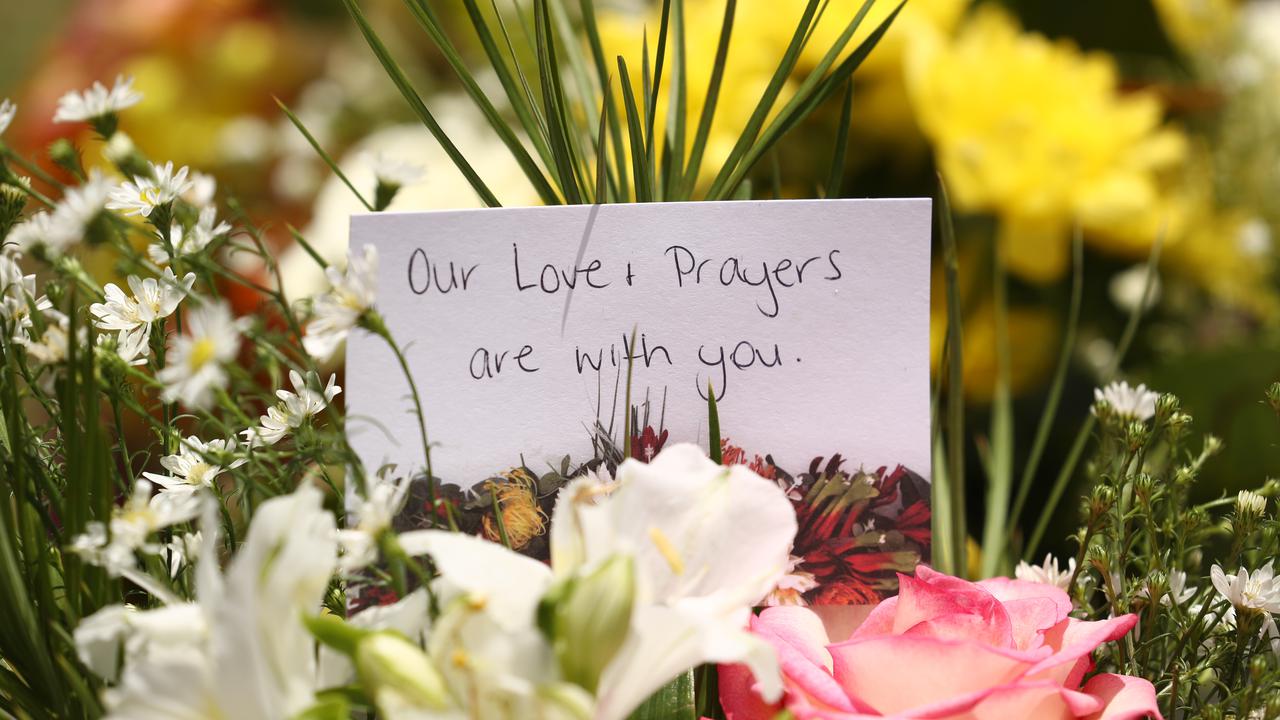 Our Love + Prayers
are with you.